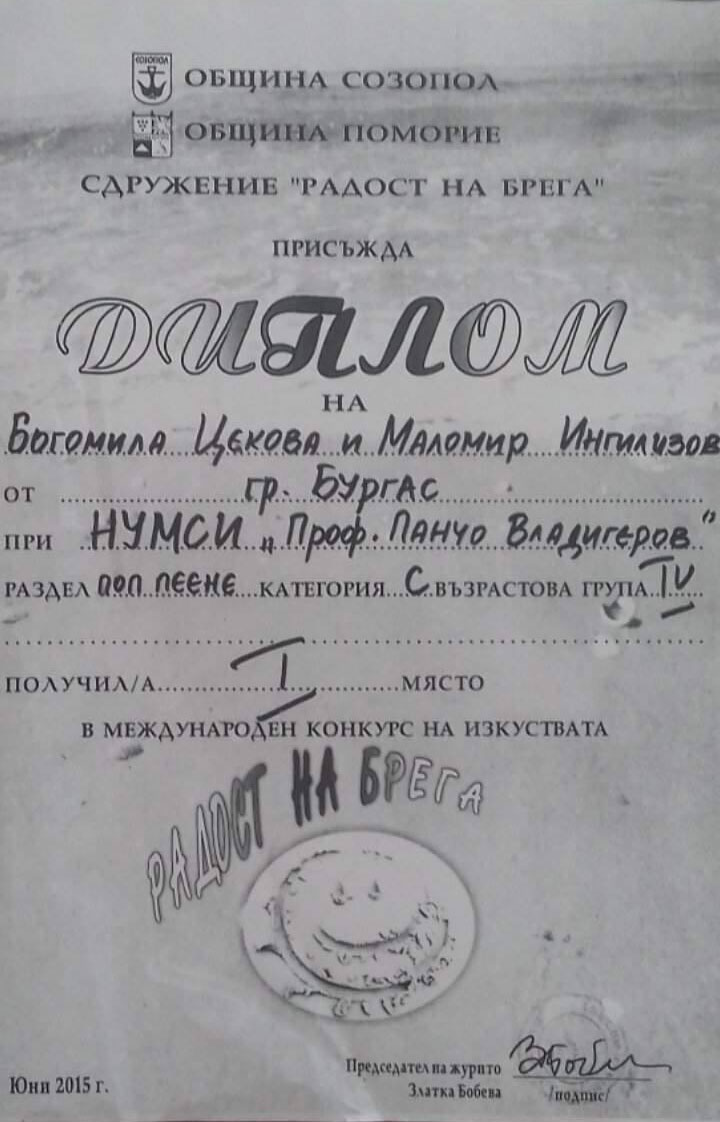 СОЗОПОЛ
ОБЩИНА СОЗОПОЛ
ОБЩИНА ПОМОРИЕ
СДРУЖЕНИЕ "РАДОСТ НА БРЕГА"
ПРИСЪЖДА
ДИПЛОМ
НА
Богомила Цекова и Маломир Ингилизов
ОТ гр. Бургас
ПРИ НУМСИ „Проф. Панчо Владигеров"
РАЗДЕЛ поп пеене КАТЕГОРИЯ С ВЪЗРАСТОВА ГРУПА IV
ПОЛУЧИЛ/А I МЯСТО
В МЕЖДУНАРОДЕН КОНКУРС НА ИЗКУСТВАТА
РАДОСТ НА БРЕГА
Председател на журито
Златка Бобева
/подпис/
Юни 2015 г.